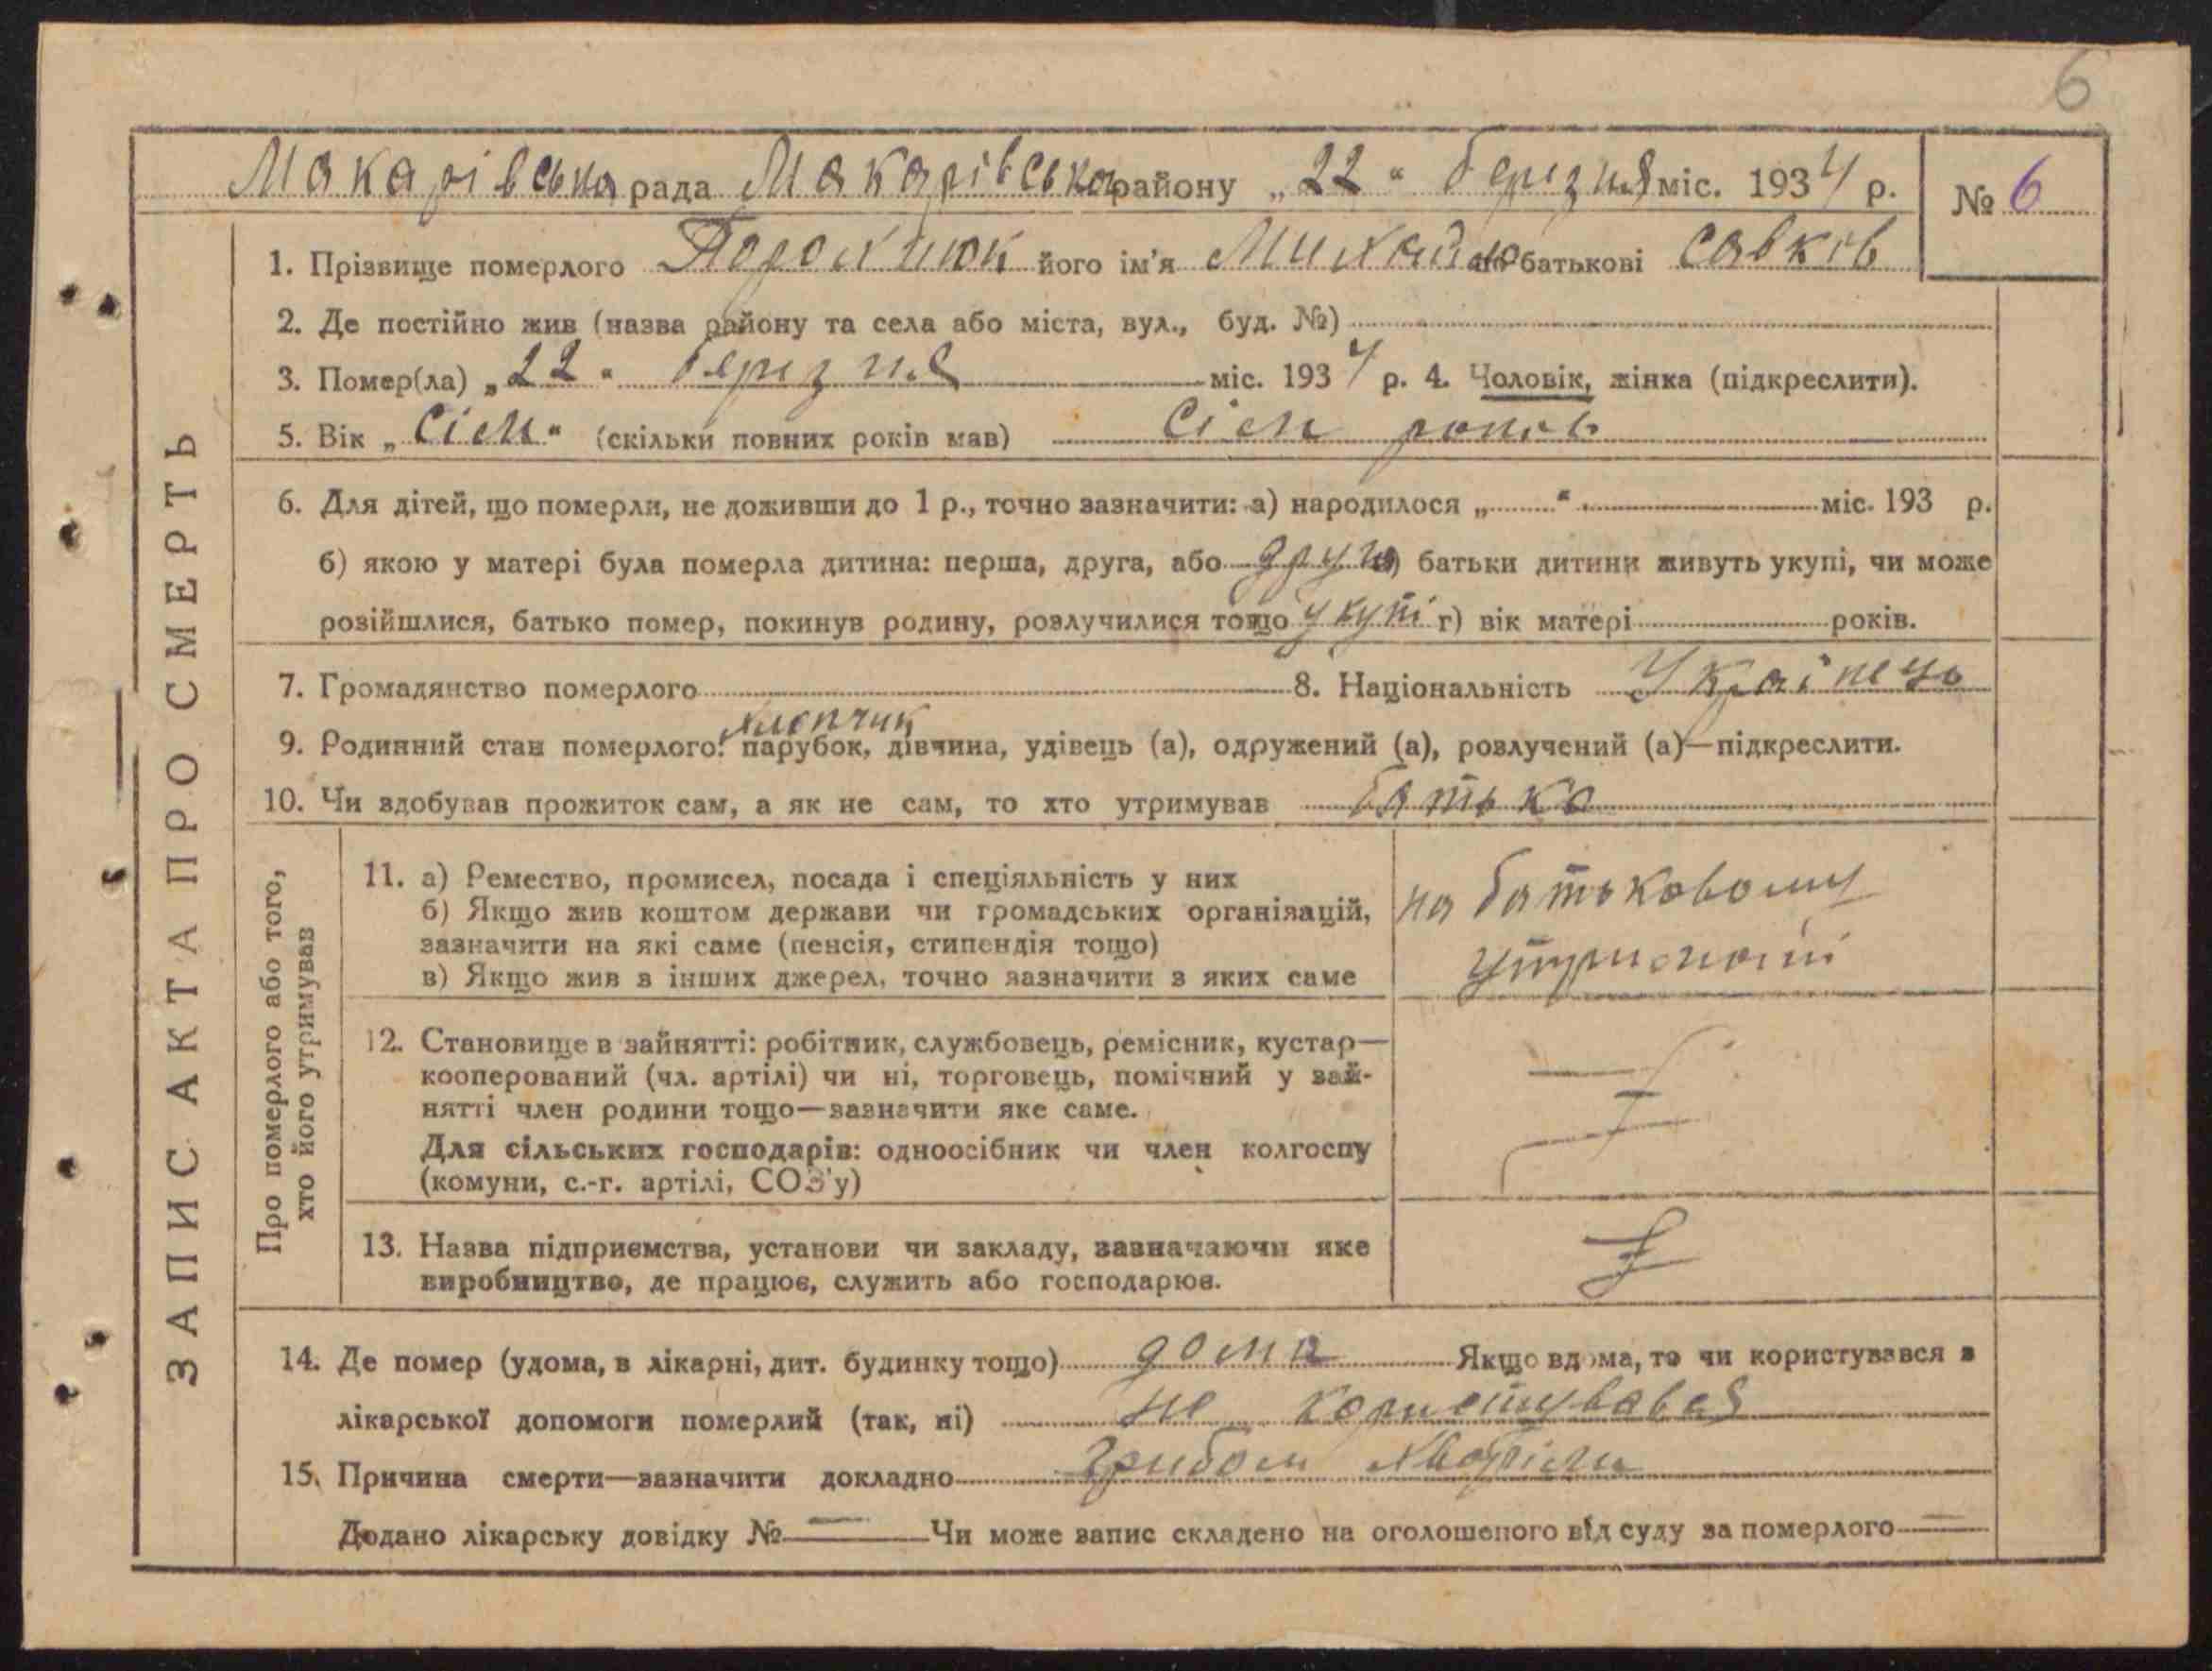 6
Макарівська рада Макарівська району „22“ березня міс. 1934 р. № 6
1. Прізвище померлого його ім'я Михайло по батькові Савків
2. Де постійно жив (назва району та села або міста, вул., буд. №)
3. Помер(ла) „22“ березня міс. 1934 р. 4. Чоловік, жінка (підкреслити).
5. Вік „Сієм“ (скільки повних років мав) Сієм років
6. Для дітей, що померли, не доживши до 1 р., точно зазначити: а) народилося „ “ міс. 193 р.
б) якою у матері була померла дитина: перша, друга, або друга в) батьки дитини живуть укупі, чи може
розійшлися, батько помер, покинув родину, розлучилися тощо укупі г) вік матері років.
7. Громадянство померлого 8. Національність Українець
хлопчик
9. Родинний стан померлого: парубок, дівчина, удівець (а), одружений (а), розлучений (а)—підкреслити.
10. Чи здобував прожиток сам, а як не сам, то хто утримував батько
ЗАПИС АКТА ПРО СМЕРТЬ
Про померлого або того,
хто його утримував
11. а) Ремество, промисел, посада і спеціяльність у них
б) Якщо жив коштом держави чи громадських організацій,
зазначити на які саме (пенсія, стипендія тощо)
в) Якщо жив з інших джерел, точно зазначити з яких саме
на батьковому
12. Становище в зайнятті: робітник, службовець, ремісник, кустар—
кооперований (чл. артілі) чи ні, торговець, помічний у зай-
нятті член родини тощо—зазначити яке саме.
Для сільських господарів: одноосібник чи член колгоспу
(комуни, с.-г. артілі, СОЗ'у)
13. Назва підприємства, установи чи закладу, зазначаючи яке
виробництво, де працює, служить або господарює.
14. Де помер (удома, в лікарні, дит. будинку тощо) дома Якщо вдома, то чи користувався з
лікарської допомоги померлий (так, ні) не користувався
15. Причина смерти—зазначити докладно
Додано лікарську довідку № — Чи може запис складено на оголошеного від суду за померлого —